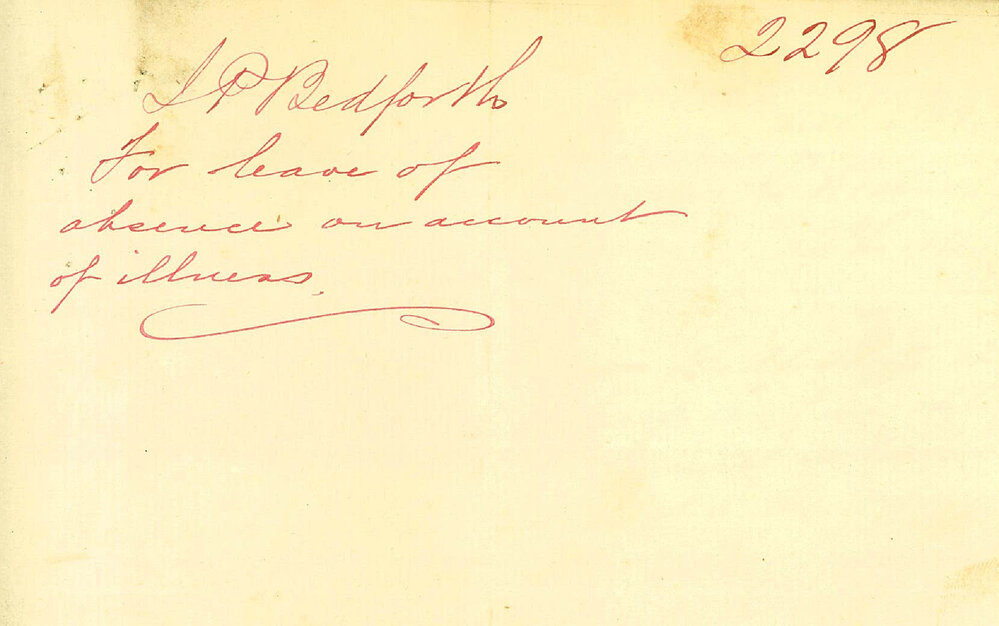 2298
S P Bedforth
For leave of
absence on account
of illness.